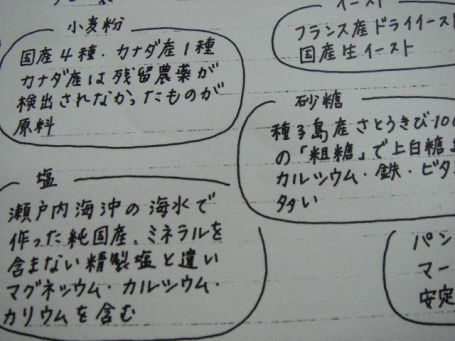 小麦粉
国産4種、カナダ産1種
カナダ産は残留農薬が
検出されなかったものが
原料
イースト
フランス産ドライイースト
国産生イースト
砂糖
種子島産さとうきび100
の「粗糖」で上白糖よ
カルシウム・鉄・ビタ
多い
塩
瀬戸内海沖の海水で
作った純国産、ミネラルを
含まない精製塩と違い
マグネシウム・カルシウム・
カリウムを含む
パン
マー
安定